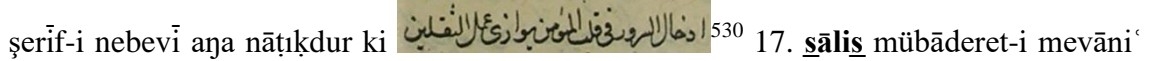 şerīf-i nebevī aŋa nāṭıḳdur ki ادخال السرور فى قلب المؤمن يوازى عمل الثقلين 530 17. s̱ālis̱ mübāderet-i mevāniʿ